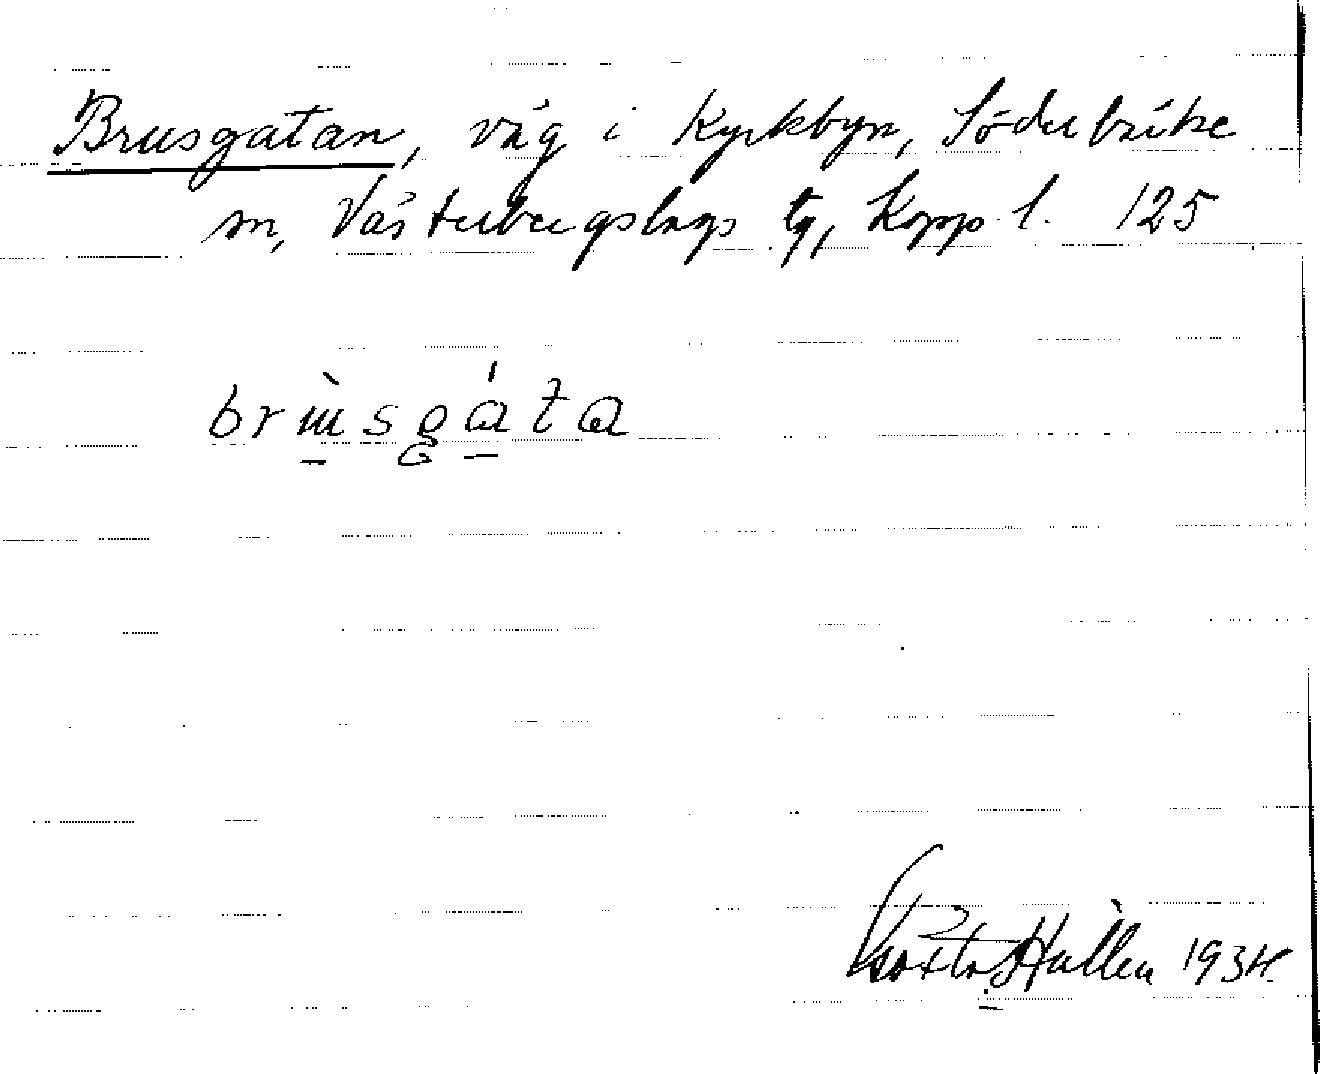 Brusgatan, väg i Kyrkbyn, Söderbärke
sn, Västerbergslags tg, Kopp. l. 125
brùsgáta
Gösta Hallén 1934.